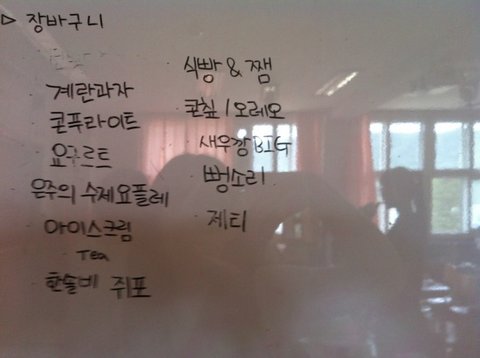 ▷ 장바구니
계란과자
콘푸라이트
요구르트
은주의 수제요플레
아이스크림
Tea
한솔비 쥐포
식빵 & 쨈
콘칲 / 오레오
새우깡 BIG
뻥소리
제티